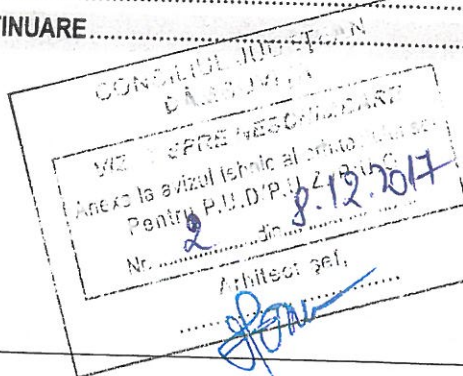 TINUARE
CONSILIUL JUDEȚEAN
DÂMBOVIȚA
VIZAT SPRE NESCHIMBARE
Anexă la avizul tehnic al arhitectului șef
Pentru P.U.D/P.U.Z/P.U.G.
Nr. 2 din 8.12.2017
Arhitect șef,